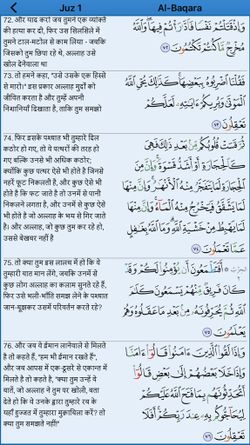 Juz 1
Al-Baqara
72. और याद करो जब तुमने एक व्यक्ति
की हत्या कर दी, फिर उस सिलसिले में
तुमने टाल-मटोल से काम लिया - जबकि
जिसको तुम छिपा रहे थे, अल्लाह उसे
खोल देनेवाला था
وَإِذْ قَتَلْتُمْ نَفْسًا فَادَّارَأْتُمْ فِيهَا وَاللَّهُ
مُخْرِجٌ مَّا كُنتُمْ تَكْتُمُونَ ٧٢
73. तो हमने कहा, "उसे उसके एक हिस्से
से मारो।" इस प्रकार अल्लाह मुर्दों को
जीवित करता है और तुम्हें अपनी
निशानियाँ दिखाता है, ताकि तुम समझो
فَقُلْنَا اضْرِبُوهُ بِبَعْضِهَا كَذَٰلِكَ يُحْيِي اللَّهُ
الْمَوْتَىٰ وَيُرِيكُمْ آيَاتِهِ لَعَلَّكُمْ
تَعْقِلُونَ ٧٣
74. फिर इसके पश्चात भी तुम्हारे दिल
कठोर हो गए, तो वे पत्थरों की तरह हो
गए बल्कि उनसे भी अधिक कठोर;
क्योंकि कुछ पत्थर ऐसे भी होते है जिनसे
नहरें फूट निकलती है, और कुछ ऐसे भी
होते है कि फट जाते है तो उनमें से पानी
निकलने लगता है, और उनमें से कुछ ऐसे
भी होते है जो अल्लाह के भय से गिर जाते
है। और अल्लाह, जो कुछ तुम कर रहे हो,
उससे बेखबर नहीं है
ثُمَّ قَسَتْ قُلُوبُكُم مِّن بَعْدِ ذَٰلِكَ فَهِيَ
كَالْحِجَارَةِ أَوْ أَشَدُّ قَسْوَةً وَإِنَّ مِنَ
الْحِجَارَةِ لَمَا يَتَفَجَّرُ مِنْهُ الْأَنْهَارُ وَإِنَّ مِنْهَا
لَمَا يَشَّقَّقُ فَيَخْرُجُ مِنْهُ الْمَاءُ وَإِنَّ مِنْهَا
لَمَا يَهْبِطُ مِنْ خَشْيَةِ اللَّهِ وَمَا اللَّهُ بِغَافِلٍ
عَمَّا تَعْمَلُونَ ٧٤
75. तो क्या तुम इस लालच में हो कि वे
तुम्हारी बात मान लेंगे, जबकि उनमें से
कुछ लोग अल्लाह का कलाम सुनते रहे हैं,
फिर उसे भली-भाँति समझ लेने के पश्चात
जान-बूझकर उसमें परिवर्तन करते रहे?
أَفَتَطْمَعُونَ أَن يُؤْمِنُوا لَكُمْ وَقَدْ
كَانَ فَرِيقٌ مِّنْهُمْ يَسْمَعُونَ كَلَامَ
اللَّهِ ثُمَّ يُحَرِّفُونَهُ مِن بَعْدِ مَا عَقَلُوهُ وَهُمْ
يَعْلَمُونَ ٧٥
76. और जब वे ईमान लानेवाले से मिलते
है तो कहते हैं, "हम भी ईमान रखते हैं",
और जब आपस में एक-दूसरे से एकान्त में
मिलते है तो कहते है, "क्या तुम उन्हें वे
बातें, जो अल्लाह ने तुम पर खोली, बता
देते हो कि वे उनके द्वारा तुम्हारे रब के
यहाँ हुज्जत में तुम्हारा मुक़ाबिला करें? तो
क्या तुम समझते नहीं!"
وَإِذَا لَقُوا الَّذِينَ آمَنُوا قَالُوا آمَنَّا
وَإِذَا خَلَا بَعْضُهُمْ إِلَىٰ بَعْضٍ قَالُوا
أَتُحَدِّثُونَهُم بِمَا فَتَحَ اللَّهُ عَلَيْكُمْ
لِيُحَاجُّوكُم بِهِ عِندَ رَبِّكُمْ أَفَلَا
تَعْقِلُونَ ٧٦